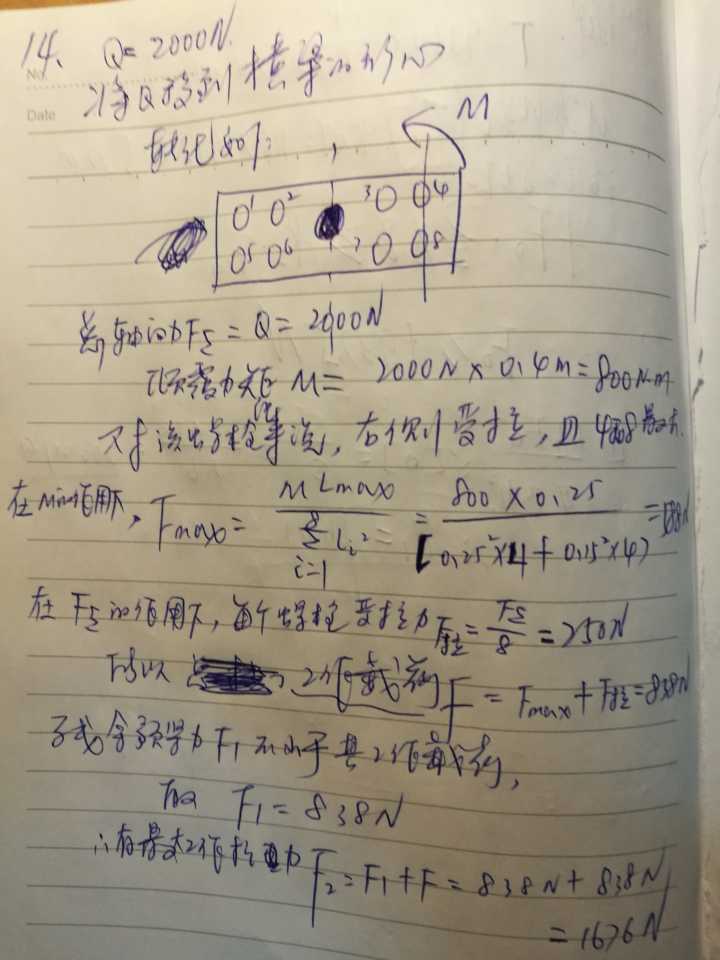 14、 Q=2000N.
No
将Q移到横梁的形心
Date
转化如下:
M
1 2 3 4
5 6 7 8
总轴向力FΣ = Q = 2000N
倾覆力矩 M = 2000N × 0.4m = 800N·m
对于该螺栓组来说, 右侧受拉, 且4和8最大.
在M的作用下, Fmax = M Lmax / Σ(i=1→8) Li² = 800 × 0.25 / [0.25²×4 + 0.15²×4) = 588N
在FΣ的作用下, 每个螺栓受拉力 F拉 = FΣ/8 = 250N
所以 工作载荷 F = Fmax + F拉 = 838N
残余预紧力F1不小于其工作载荷,
故 F1 = 838N
∴有最大工作拉力 F2 = F1 + F = 838N + 838N
= 1676N